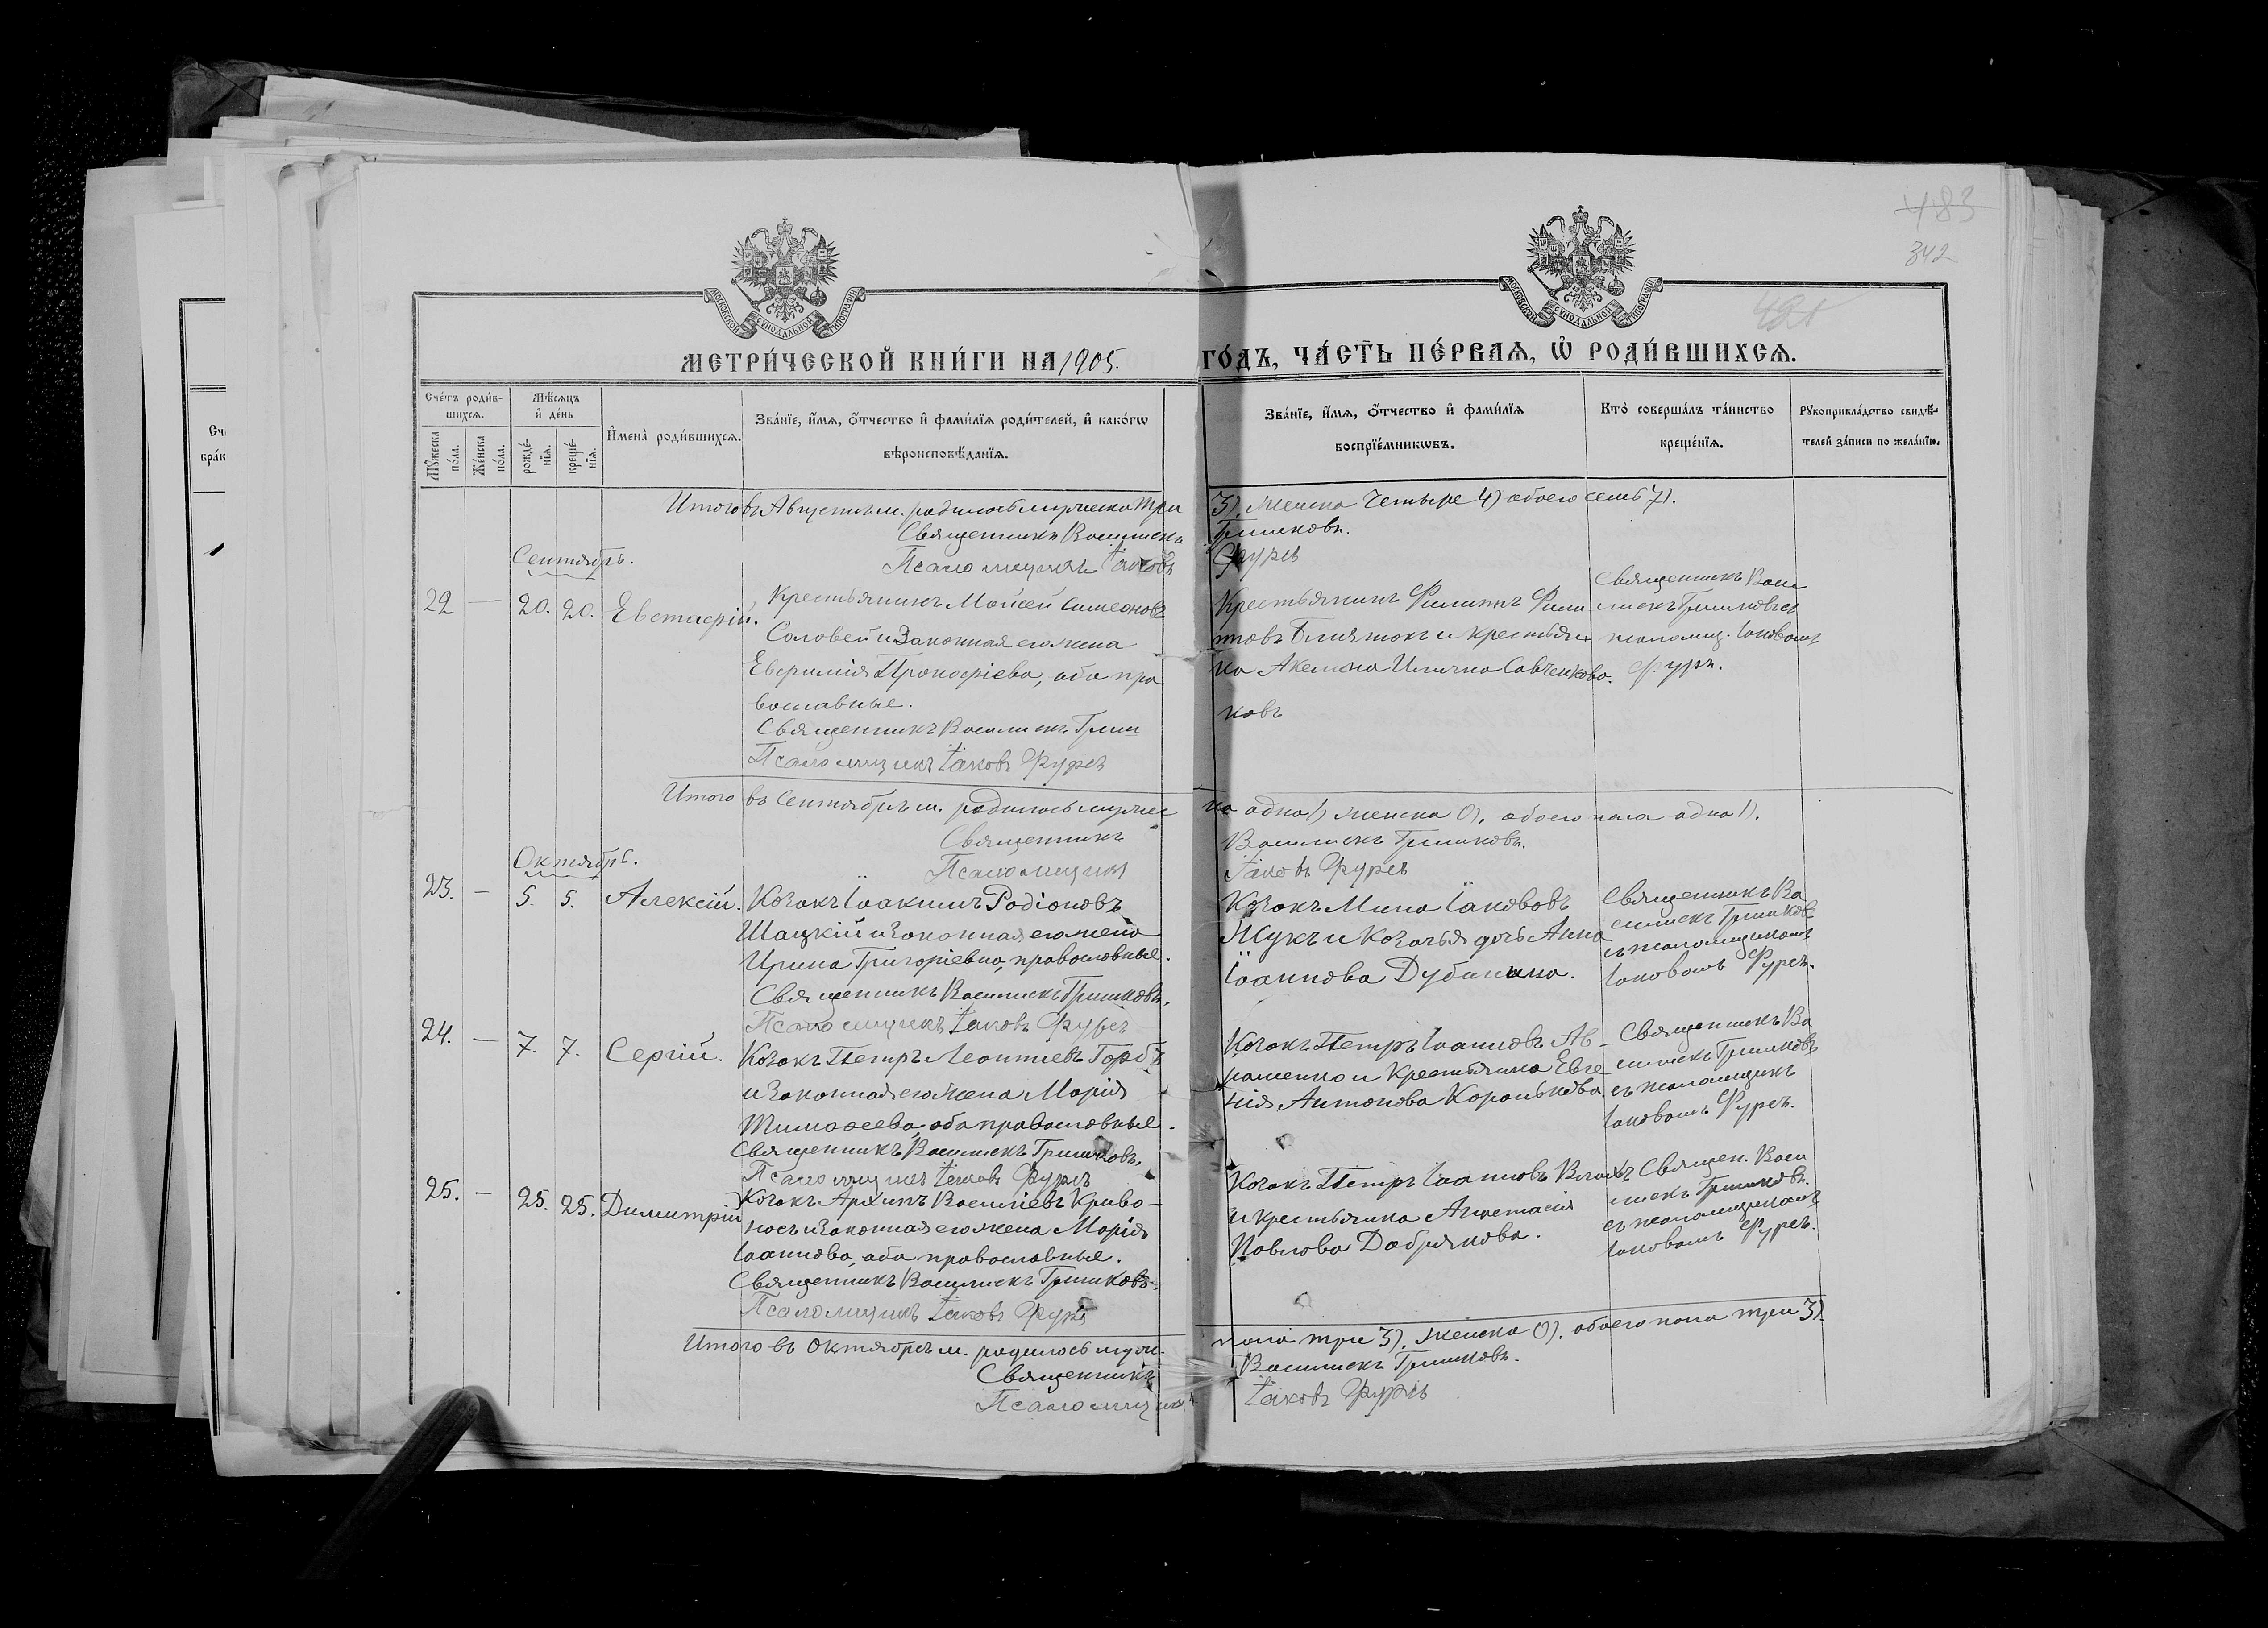 483
342
МОСКОВСКОЙ СѴНОДАЛЬНОЙ ТИПОГРАФІИ
МОСКОВСКОЙ СѴНОДАЛЬНОЙ ТИПОГРАФІИ
МЕТРИ́ЧЕСКОЙ КНИ́ГИ НА 1905. ГО́ДЪ, ЧА́СТЬ ПЕ́РВАѦ, Ѡ҆ РОДИ́ВШИХСѦ.
Сче́тъ роди́в-
шихсѧ.
Мѣ́сѧцъ
и҆ де́нь
Мꙋ́жеска
по́ла.
Же́нска
по́ла.
рожде́-
нїѧ.
креще́-
нїѧ.
И҆мена̀ роди́вшихсѧ.
Зва́нїе, и҆́мѧ, ѻ҆́тчество и҆ фами́лїѧ роди́телей, и҆ како́гѡ
вѣроисповѣ́данїѧ.
Зва́нїе, и҆́мѧ, ѻ҆́тчество и҆ фами́лїѧ
воспрїе́мникѡвъ.
Кто̀ соверша́лъ та́инство
креще́нїѧ.
Рꙋкоприкла́дство свидѣ́-
телей за́писи по жела́нїю.
Итого въ Августѣ м. родилось мужеска три 3), женска четыре 4) обоего семь 7).
Священникъ Василискъ Гришковъ.
Псаломщикъ Іаковъ Фурсъ
Сентябрь.
22 — 20. 20. Евстаѳій.
Крестьянинъ Мойсей Симеоновъ
Соловей и законная его жена
Евфимія Прокофіева, оба пра
вославные.
Священникъ Василискъ Гриш
ковъ
Псаломщикъ Іаковъ Фурсъ
Крестьянинъ Филиппъ Фили
пповъ и крестьян
ка Акелина Ильична Савченкова.
Священникъ Васи
лискъ Гришковъ съ
псаломщ. Іаковомъ
Фурс.
Итого въ Сентябрѣ м. родилось мужес
ка одна 1) женска 0), обоего пола одна 1).
Священникъ Василискъ Гришковъ.
Псаломщикъ Іаковъ Фурсъ
Октябрь.
23. — 5. 5. Алексій.
Козакъ Іоакимъ Родіоновъ
Шацкій и законная его жена
Ирина Григоріевна, православные.
Священникъ Василискъ Гришковъ.
Псаломщикъ Іаковъ Фурсъ
Козакъ Мина Іаковъ
Жукъ и козачья дочь Анна
Іоаннова Дубинина.
Священникъ Ва
силискъ Гришковъ
съ псаломщикомъ
Іаковомъ Фурсъ.
24. — 7. 7. Сергій.
Козакъ Петръ Леонтіевъ Горбъ
и законная его жена Марія
Тимоѳеева, оба православные.
Священникъ Василискъ Гришковъ.
Псаломщикъ Іаковъ Фурсъ
Козакъ Петръ Іоанновъ Ав-
раменко и крестьянка Евге
нія Антонова Коронькова.
Священникъ Ва
силискъ Гришковъ
съ псаломщикъ
Іаковомъ Фурсъ.
25. — 25. 25. Димитрій
Козакъ Архипъ Василіевъ Криво-
носъ и законная его жена Марія
Іоаннова, оба православные.
Священникъ Василискъ Гришковъ.
Псаломщикъ Іаковъ Фурсъ
Козакъ Петръ Іоанновъ
и крестьянка Анастасія
Павлова Добрякова.
Священ. Васи
лискъ Гришковъ.
съ псаломщикомъ
Іаковомъ Фурсъ.
Итого въ Октябрѣ м. родилось муж.
пола три 3), женска 0). обоего пола три 3)
Священникъ Василискъ Гришковъ.
Псаломщикъ Іаковъ Фурсъ